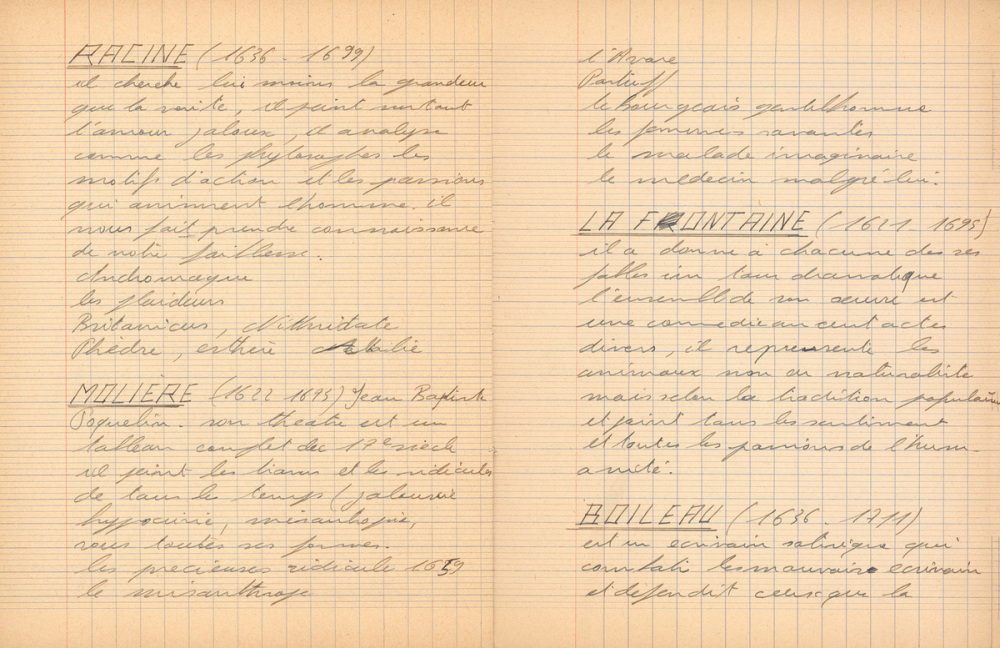 RACINE (1636 - 1699)
il cherche lui moins la grandeur
que la verite, il peint surtout
l'amour jaloux, il analyse
comme les phylosophes les
motifs d'action et les passions
qui animent l'homme. il
nous fait prendre connaissance
de notre faiblesse.
Andromaque
les plaideurs
Britanicus, Mithridate
Phèdre, esthère Athalie
MOLIÈRE (1622 1673) Jean Baptiste
Poquelin. son theatre est un
tableau complet du 17e siecle
il peint les travers et les ridicules
de tous les temps (jalousie
hypocrisie, misanthropie,
sous toutes ses formes.
les precieuses ridicule 1659
le misanthrope
l'Avare
Partuff
le bourgeois gentilhomme
les femmes savantes
le malade imaginaire
le medecin malgré lui.
LA FONTAINE (1621 - 1695)
il a donné à chacune des ses
fables un tour dramatique
l'ensemble de son œuvre est
une comedie au cent actes
divers, il represente les
animaux non en naturaliste
mais selon la tradition populaire
et peint tous les sentiment
et toutes les passions de l'hum-
anité.
BOILEAU (1636 - 1711)
est un ecrivain satirique qui
combati les mauvais ecrivain
et defendit ceux que la